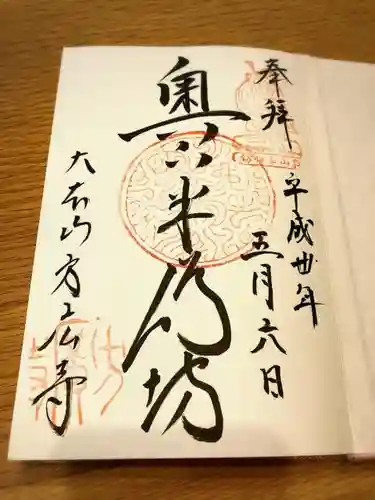 奉拝
平成卅年
五月六日
奥山半僧坊
大本山方広寺